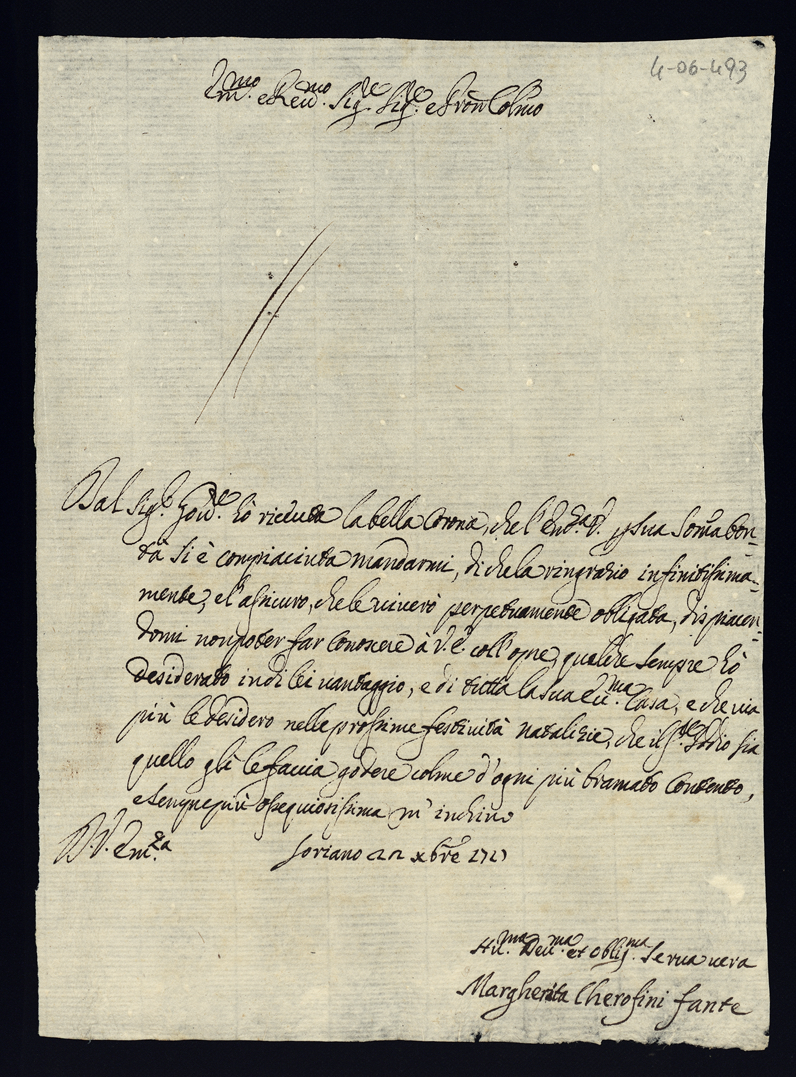 4-06-493
Em.mo e Reud.mo Sig.re Sig.re e Pron Colmo
Dal Sig.r Gou.re hò riceuuta la bella Corona, che l'Em.za V. p sua Somma bon=
tà si è compiaciuta mandarmi, di che la ringratio infinitissima=
mente, e l'assicuro, che le uiuerò perpetuamente obligata, dispiacen=
domi non poter far Conoscere à V.E. coll'opre, quel che sempre hò
desiderato in di lei uantaggio, e di tutta la sua Ecc.ma Casa, e che uia
più le desidero nelle prossime festiuità natalizie, che il Sig.re Iddio sia
quello gli le faccia godere colme d'ogni più bramato Contento,
e sempre più ossequiosissima m'inchino
D. V. Em.za
Soriano 22 Xbre 1727
Hu.ma Deu.ma et oblig.ma Serua uera
Margherita Cherofini fante